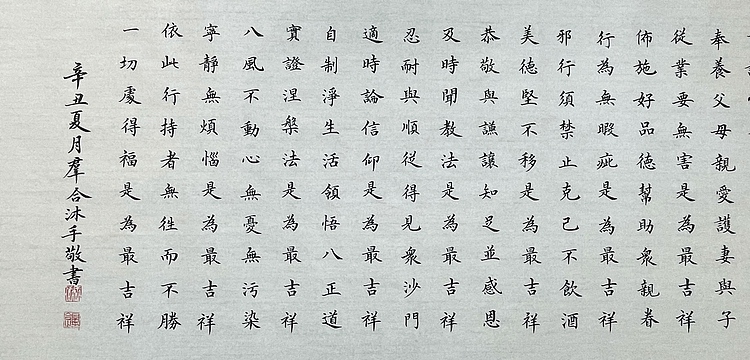 奉養父母親愛護妻與子
從業要無害是為最吉祥
佈施好品德幫助衆親眷
行為無瑕疵是為最吉祥
邪行須禁止克己不飲酒
美德堅不移是為最吉祥
恭敬與謙讓知足並感恩
及時聞教法是為最吉祥
忍耐與順從得見衆沙門
適時論信仰是為最吉祥
自制淨生活領悟八正道
實證涅槃法是為最吉祥
八風不動心無憂無污染
寧靜無煩惱是為最吉祥
依此行持者無往而不勝
一切處得福是為最吉祥
辛丑夏月羣合沐手敬書